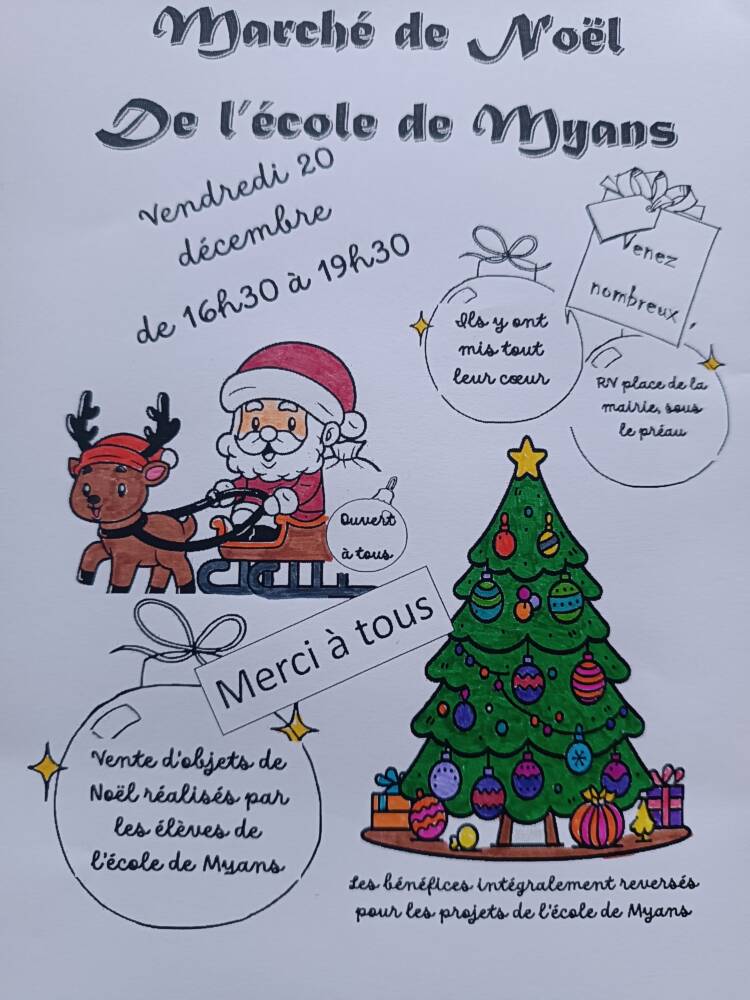 Marché de Noël
De l'école de Myans
Vendredi 20
décembre
de 16h30 à 19h30
Venez
nombreux,
Ils y ont
mis tout
leur cœur
RV place de la
mairie, sous
le préau
Ouvert
à tous
Merci à tous
Vente d'objets de
Noël réalisés par
les élèves de
l'école de Myans
Les bénéfices intégralement reversés
pour les projets de l'école de Myans